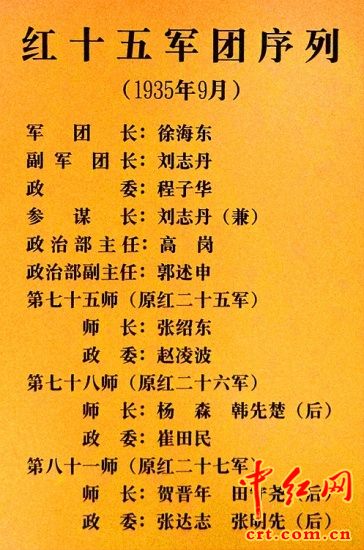 红十五军团序列
（1935年9月）
军团长：徐海东
副军团长：刘志丹
政委：程子华
参谋长：刘志丹（兼）
政治部主任：高岗
政治部副主任：郭述申
第七十五师（原红二十五军）
师长：张绍东
政委：赵凌波
第七十八师（原红二十六军）
师长：杨森 韩先楚（后）
政委：崔田民
第八十一师（原红二十七军）
师长：贺晋年 田守尧（后）
政委：张达志 张明先（后）
中红网
crt.com.cn